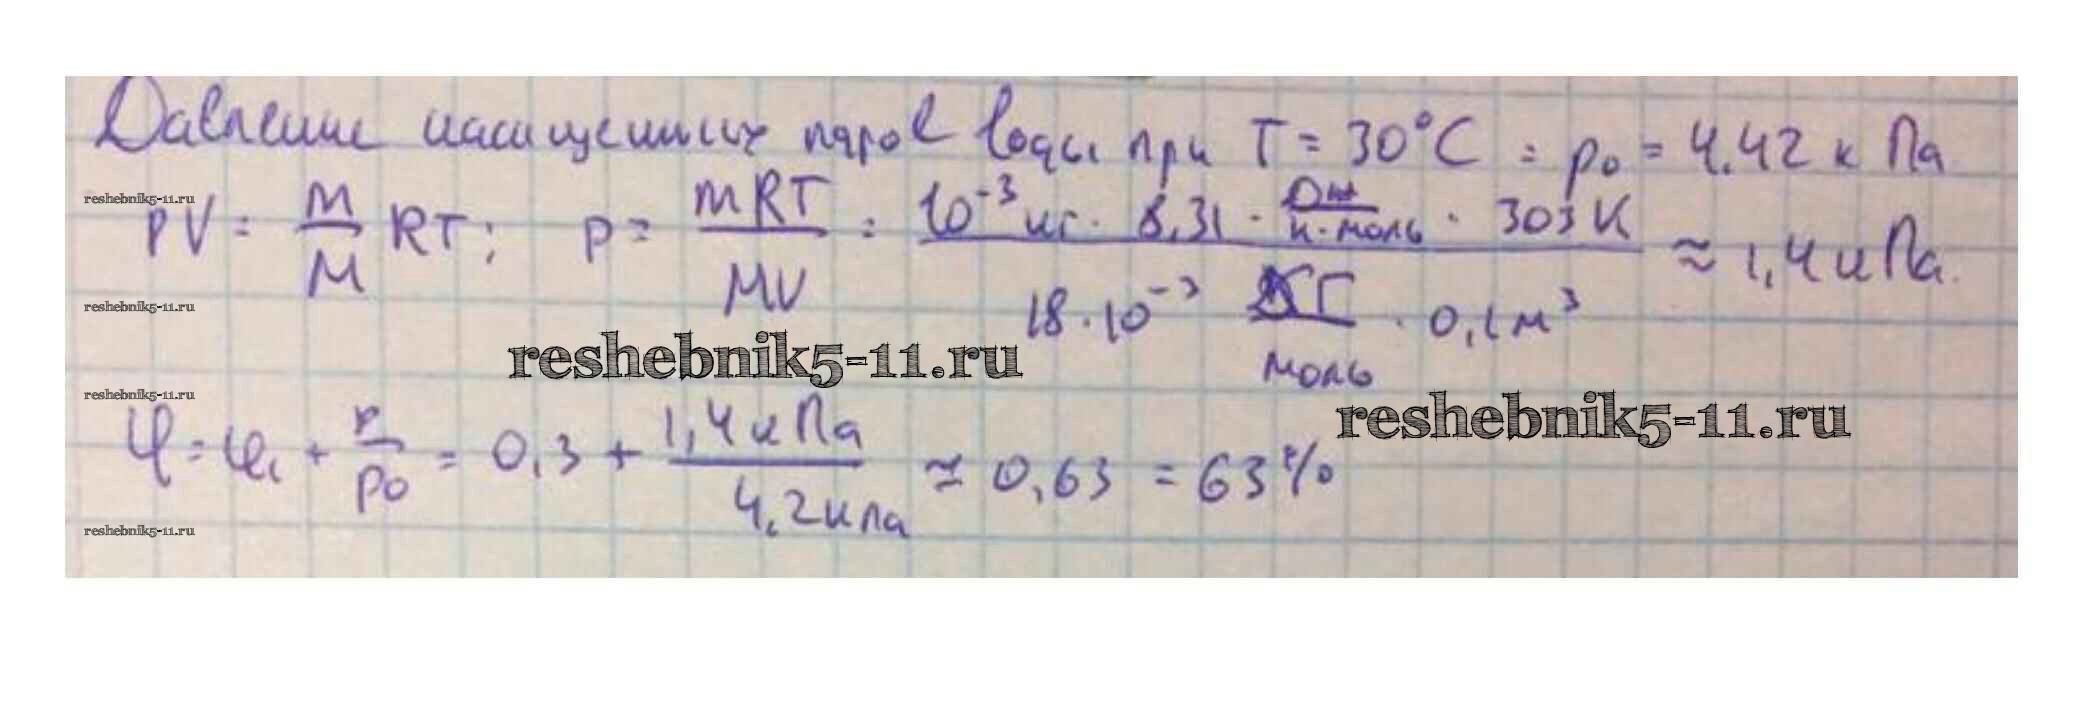 Давление насыщенных паров воды при T = 30°C = p₀ = 4.42 к Па
reshebnik5-11.ru
PV = m/M RT; p = mRT/MV = 10⁻³ кг · 8,31 · Дж/К·моль · 303 К / 18 · 10⁻³ кг/моль · 0,1 м³ ≈ 1,4 кПа.
reshebnik5-11.ru
reshebnik5-11.ru
reshebnik5-11.ru
reshebnik5-11.ru
φ = φ₁ + p/p₀ = 0,3 + 1,4 кПа/4,2 кПа ≈ 0,63 = 63 %
reshebnik5-11.ru